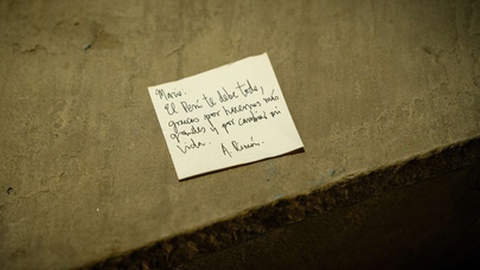 Mario.
El Perú te debe todo,
gracias por hacernos más
grandes y por cambiar mi
vida.
A.